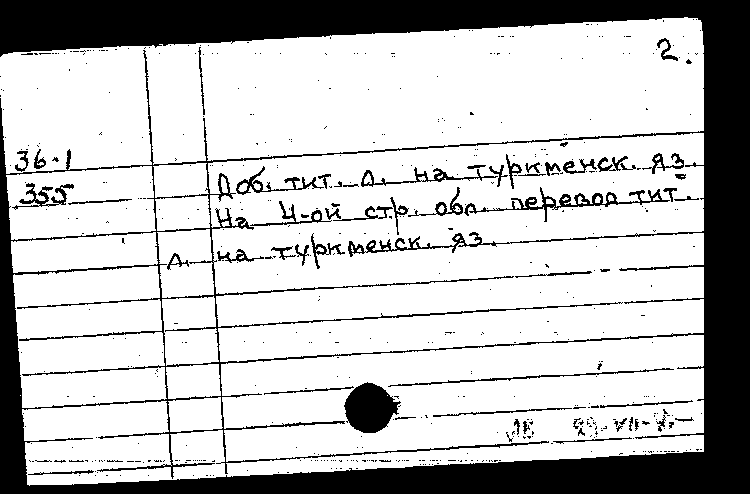 2.
36.1
355
Доб. тит. л. на туркменск. яз.
На 4-ой стр. обл. перевод тит.
л. на туркменск. яз.